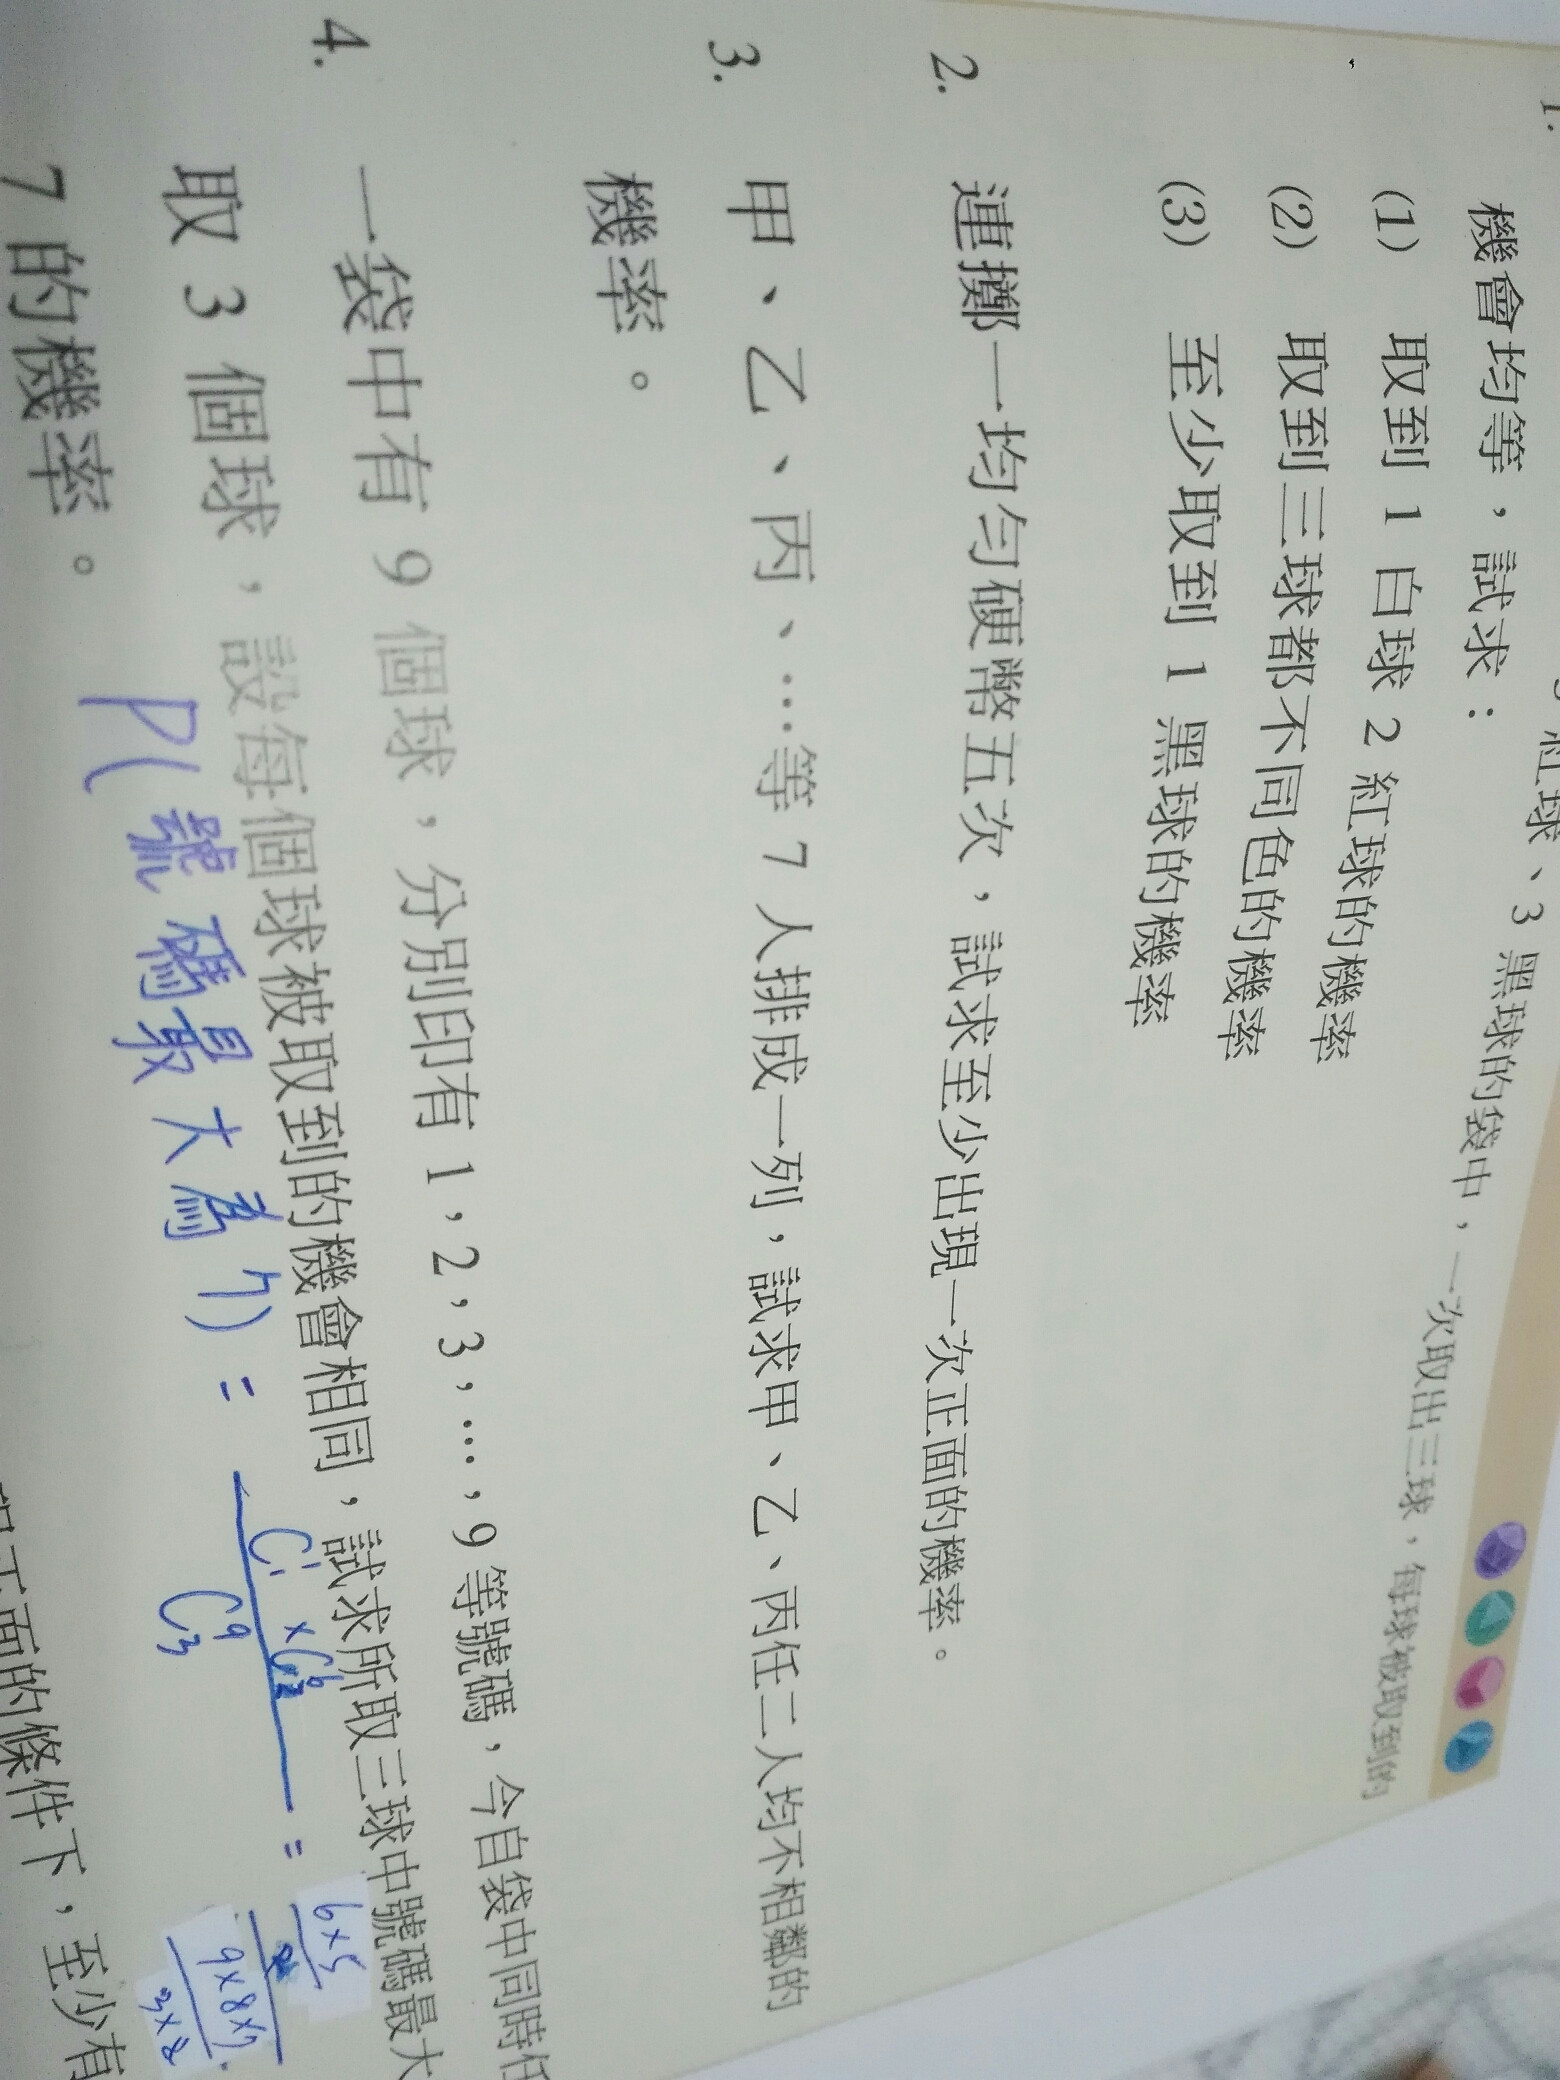 1.
紅球、3 黑球的袋中，一次取出三球，每球被取到的
機會均等，試求：
(1) 取到 1 白球 2 紅球的機率
(2) 取到三球都不同色的機率
(3) 至少取到 1 黑球的機率
2. 連擲一均勻硬幣五次，試求至少出現一次正面的機率。
3. 甲、乙、丙、…等 7 人排成一列，試求甲、乙、丙任二人均不相鄰的
機率。
4. 一袋中有 9 個球，分別印有 1，2，3，…，9 等號碼，今自袋中同時任
取 3 個球，設每個球被取到的機會相同，試求所取三球中號碼最大
7 的機率。
P(號碼最大為7) = C¹₁ × C⁶₂ / C⁹₃ = 6×5 / 2 / 9×8×7 / 3×2
正面的條件下，至少有